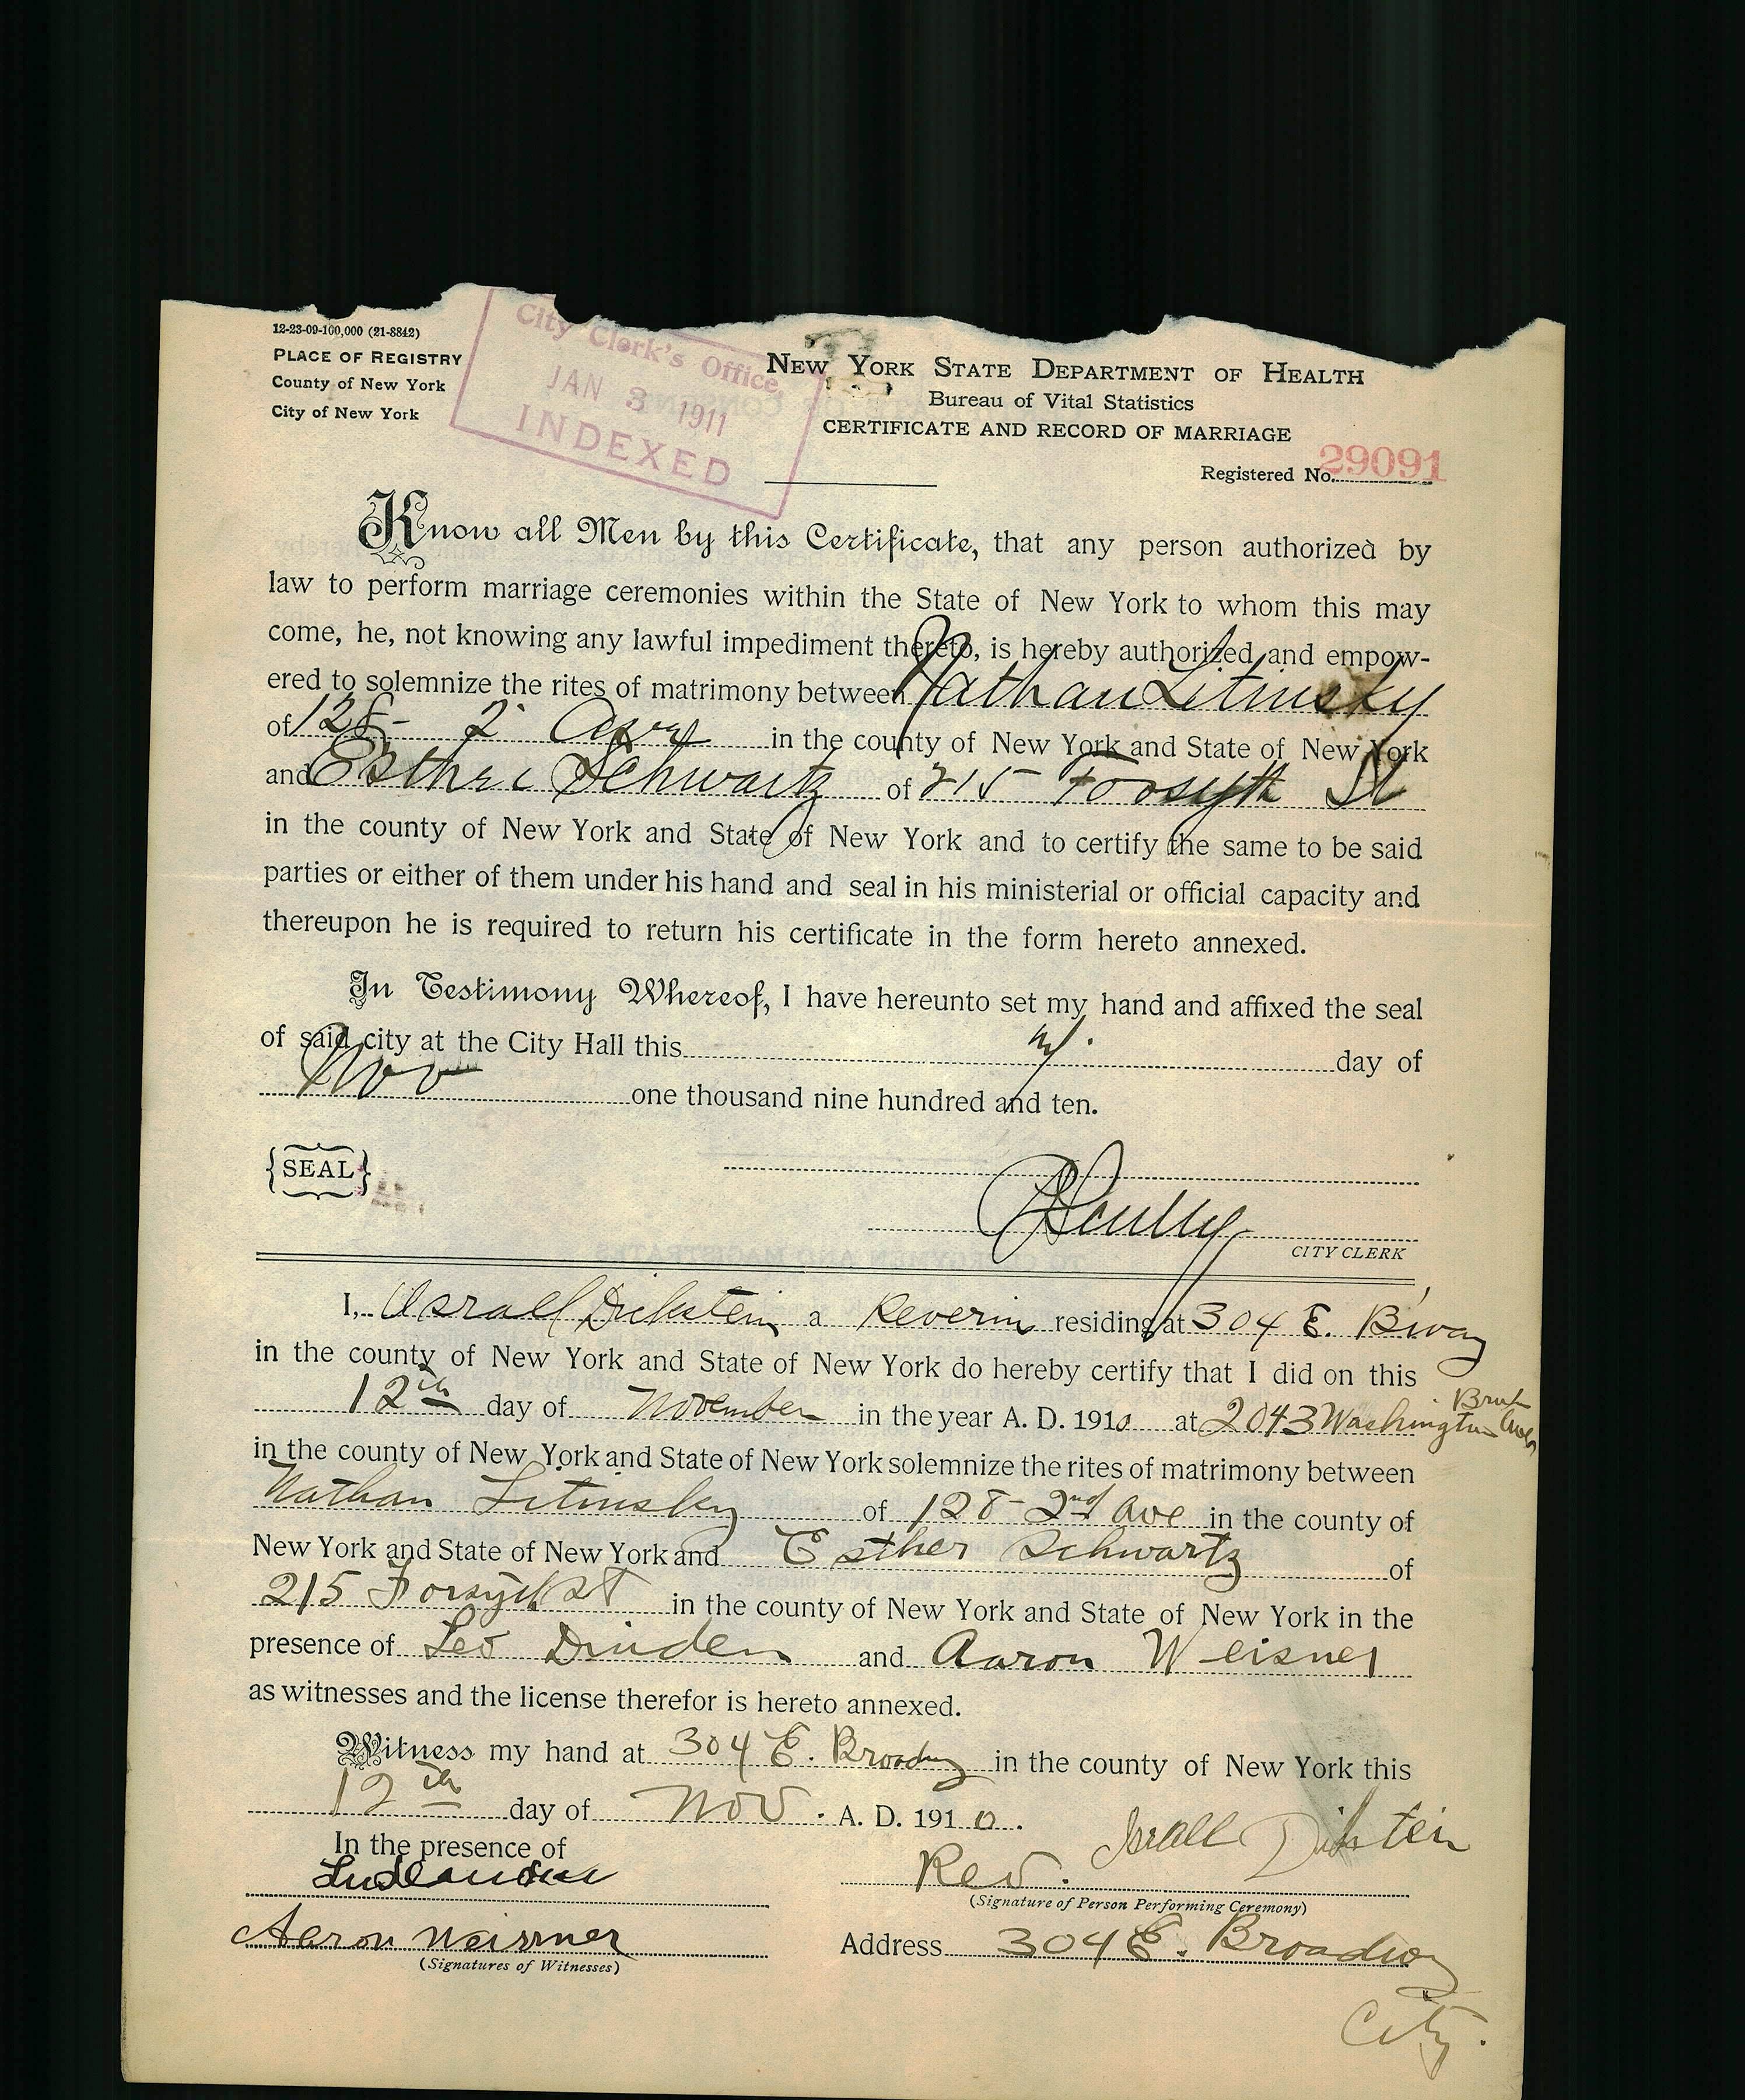 12-23-09-100,000 (21-8842)
PLACE OF REGISTRY
County of New York
City of New York
City Clerk's Office,
JAN 3 1911
INDEXED
NEW YORK STATE DEPARTMENT OF HEALTH
Bureau of Vital Statistics
CERTIFICATE AND RECORD OF MARRIAGE
Registered No. 29091
Know all Men by this Certificate, that any person authorized by
law to perform marriage ceremonies within the State of New York to whom this may
come, he, not knowing any lawful impediment thereto, is hereby authorized and empow-
ered to solemnize the rites of matrimony between Nathan Litinsky
of 128- 2 Ave in the county of New York and State of New York
and Esther Schwartz of 215 Forsyth St
in the county of New York and State of New York and to certify the same to be said
parties or either of them under his hand and seal in his ministerial or official capacity and
thereupon he is required to return his certificate in the form hereto annexed.
In Testimony Whereof, I have hereunto set my hand and affixed the seal
of said city at the City Hall this day of
Nov one thousand nine hundred and ten.
{SEAL}
Scully
CITY CLERK
I, Israel Dickstein a residing at 304 E. B'way
in the county of New York and State of New York do hereby certify that I did on this
12th day of November in the year A. D. 1910 at 2043 Washington Ave
in the county of New York and State of New York solemnize the rites of matrimony between
Nathan Litinsky of 128- 2nd Ave in the county of
New York and State of New York and Esther Schwartz of
215 Forsyth St in the county of New York and State of New York in the
presence of Leo and Aaron Weisner
as witnesses and the license therefor is hereto annexed.
Witness my hand at 304 E. Broadway in the county of New York this
12th day of Nov. A. D. 1910.
In the presence of
Rev. Israel Dickstein
(Signature of Person Performing Ceremony)
Aaron Weisner
(Signatures of Witnesses)
Address 304 E. Broadway
City.